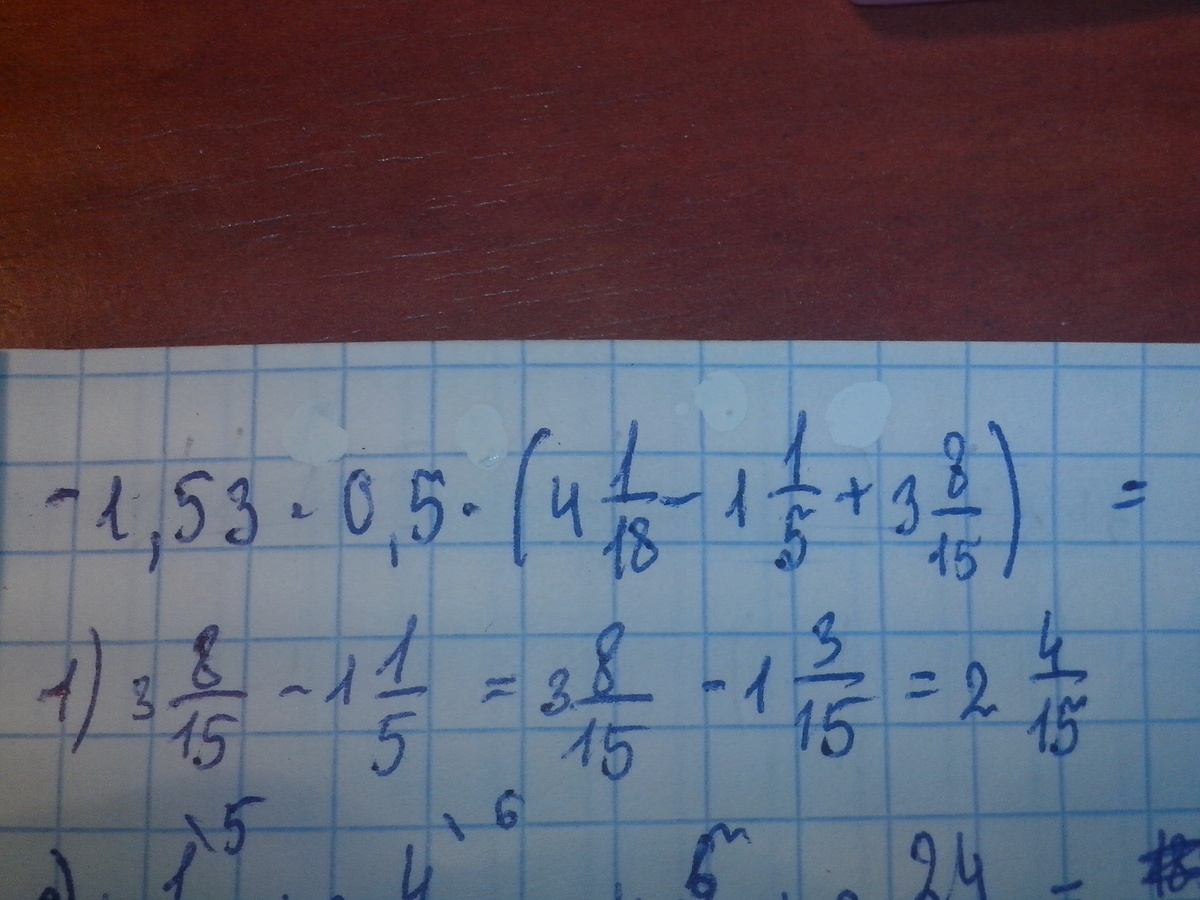 -1,53 · 0,5 · (4 1/18 - 1 1/5 + 3 8/15) =
1) 3 8/15 - 1 1/5 = 3 8/15 - 1 3/15 = 2 4/15
5 6
1 4 5 24